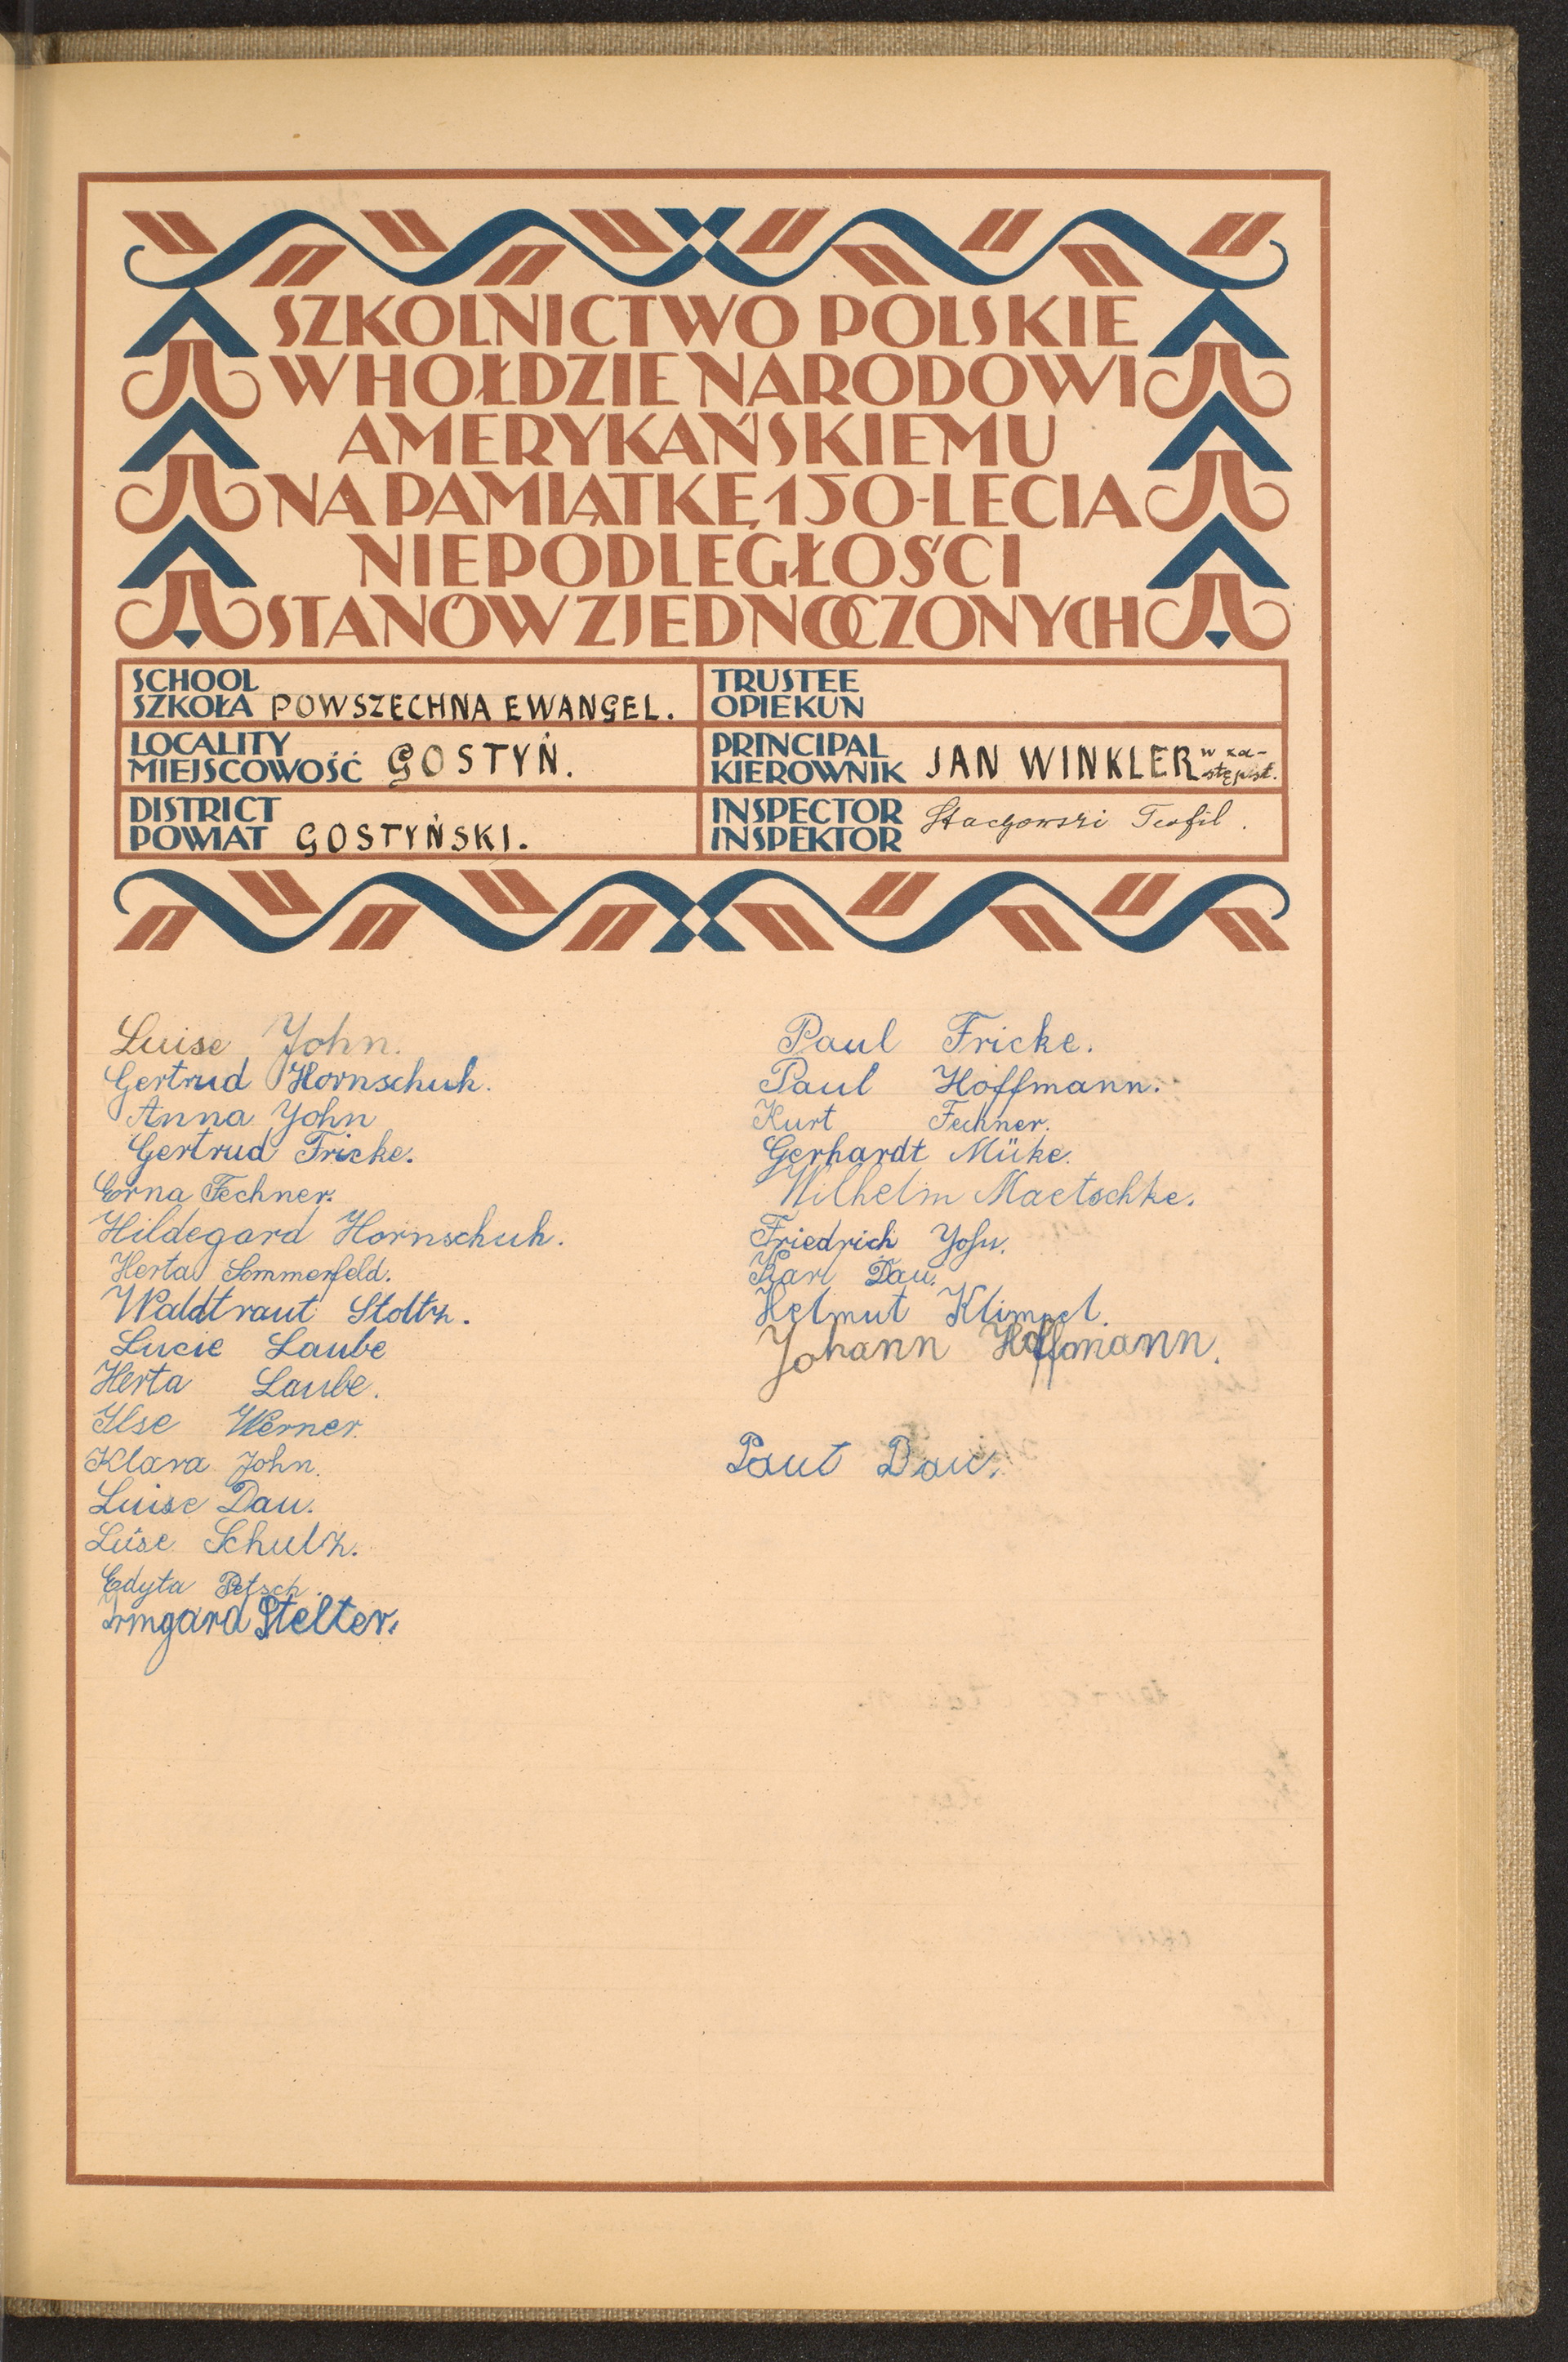 SZKOLNICTWO POLSKIE
W HOŁDZIE NARODOWI
AMERYKAŃSKIEMU
NA PAMIĄTKĘ 150-LECIA
NIEPODLEGŁOŚCI
STANÓW ZJEDNOCZONYCH
SCHOOL
SZKOŁA POWSZECHNA EWANGEL.
LOCALITY
MIEJSCOWOŚĆ GOSTYŃ.
DISTRICT
POWIAT GOSTYŃSKI.
TRUSTEE
OPIEKUN
PRINCIPAL
KIEROWNIK JAN WINKLER w za-
stępst.
INSPECTOR
INSPEKTOR Stachowski Teofil.
Luise John.
Gertrud Hornschuh.
Anna John
Gertrud Fricke.
Erna Fechner.
Hildegard Hornschuh.
Herta Sommerfeld.
Waldtraut Stoltz.
Lucie Laube
Herta Laube.
Ilse Werner.
Klara John.
Luise Dau.
Luise Schulz.
Edyta Petsch.
Irmgard Stelter.
Paul Fricke.
Paul Hoffmann.
Kurt Fechner.
Gerhardt Müke.
Wilhelm Maetschke.
Friedrich John.
Karl Dau.
Helmut Klimpel.
Johann Hoffmann.
Paul Dau.